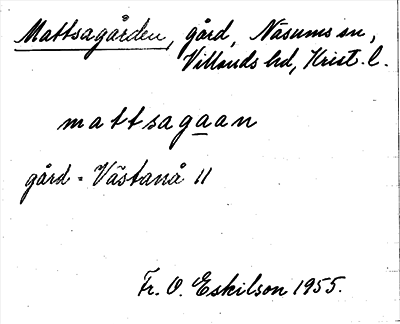 Mattsagården, gård, Näsums sn,
Villands hd, Krist. l.
mattsagaan
gård = Västanå 11
Fr. O. Eskilson 1955.